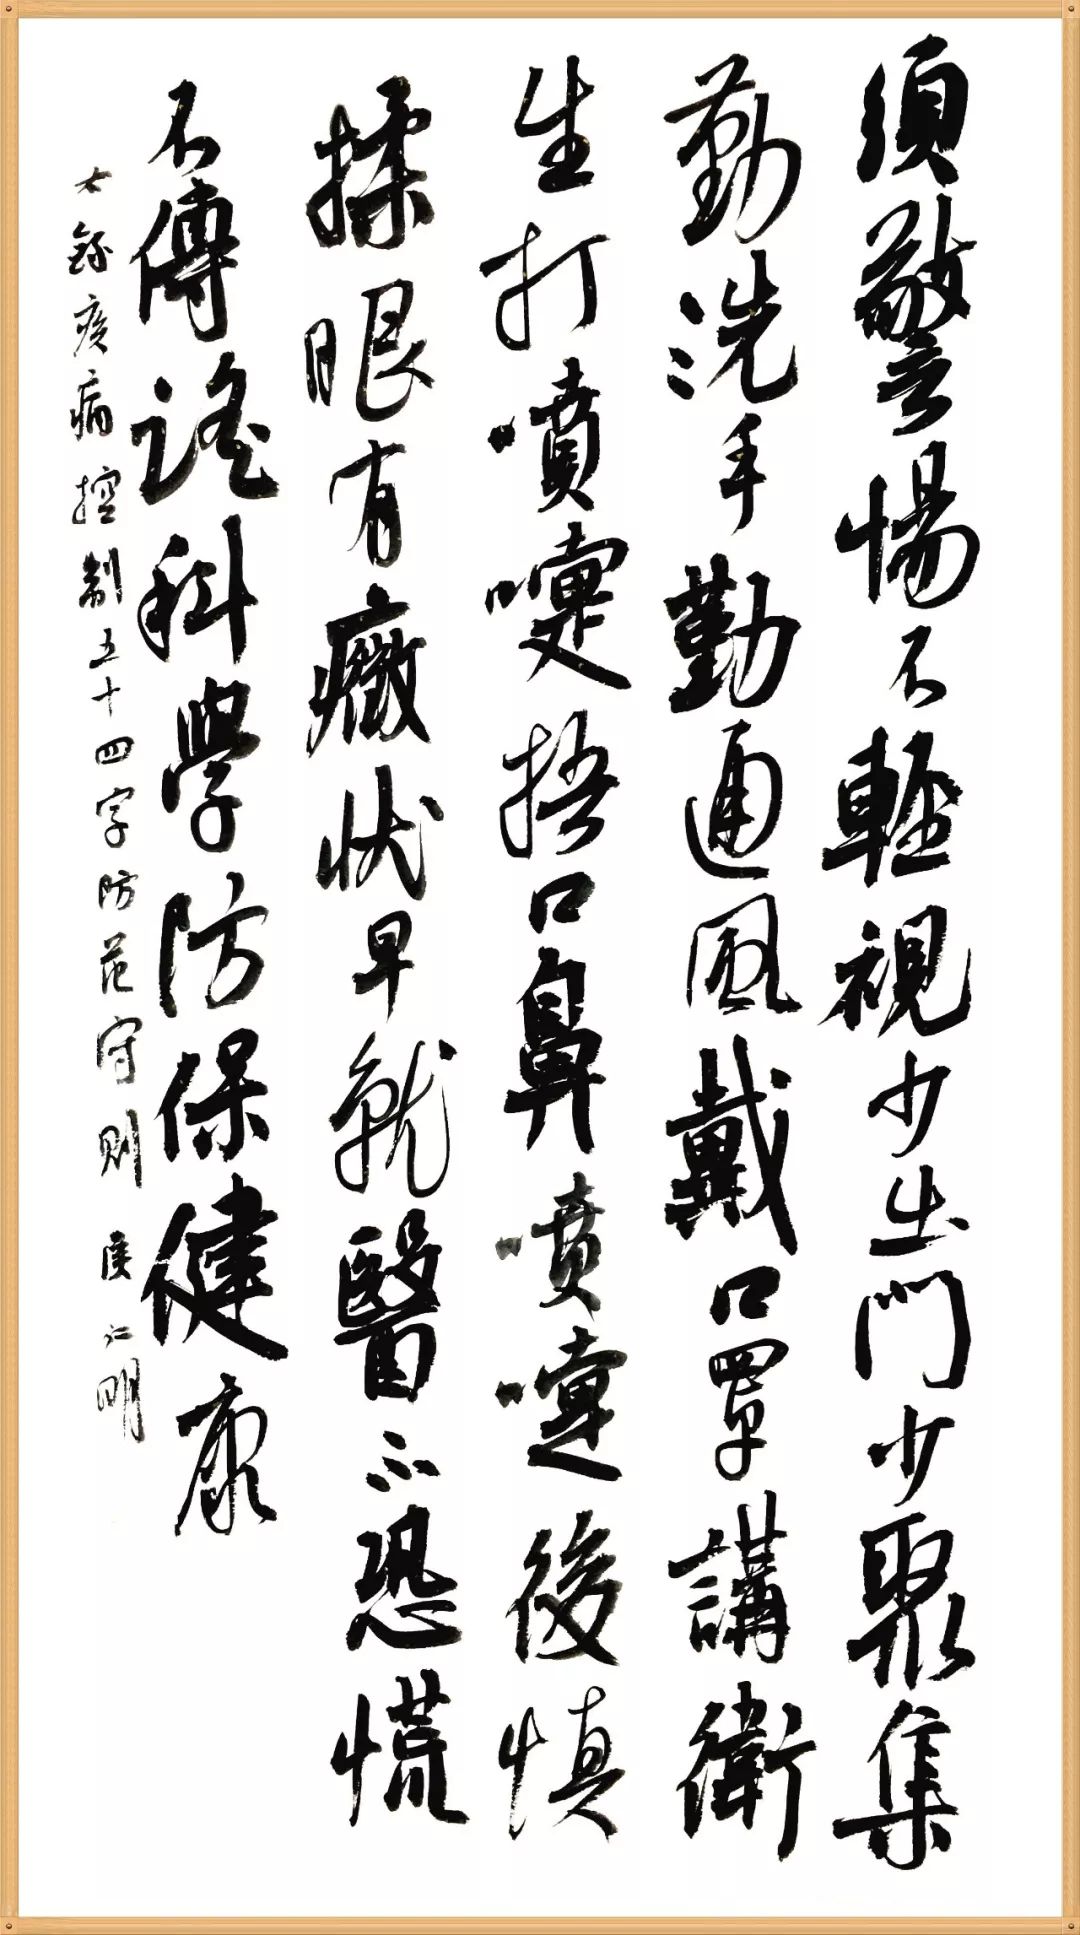 須警惕不輕視少出門少聚集
勤洗手勤通風戴口罩講衛
生打噴嚏捂口鼻噴嚏後慎
揉眼有癥狀早就醫不恐慌
不傳謠科學防保健康
右錄疾病控制五十四字防范守则 侯仁明